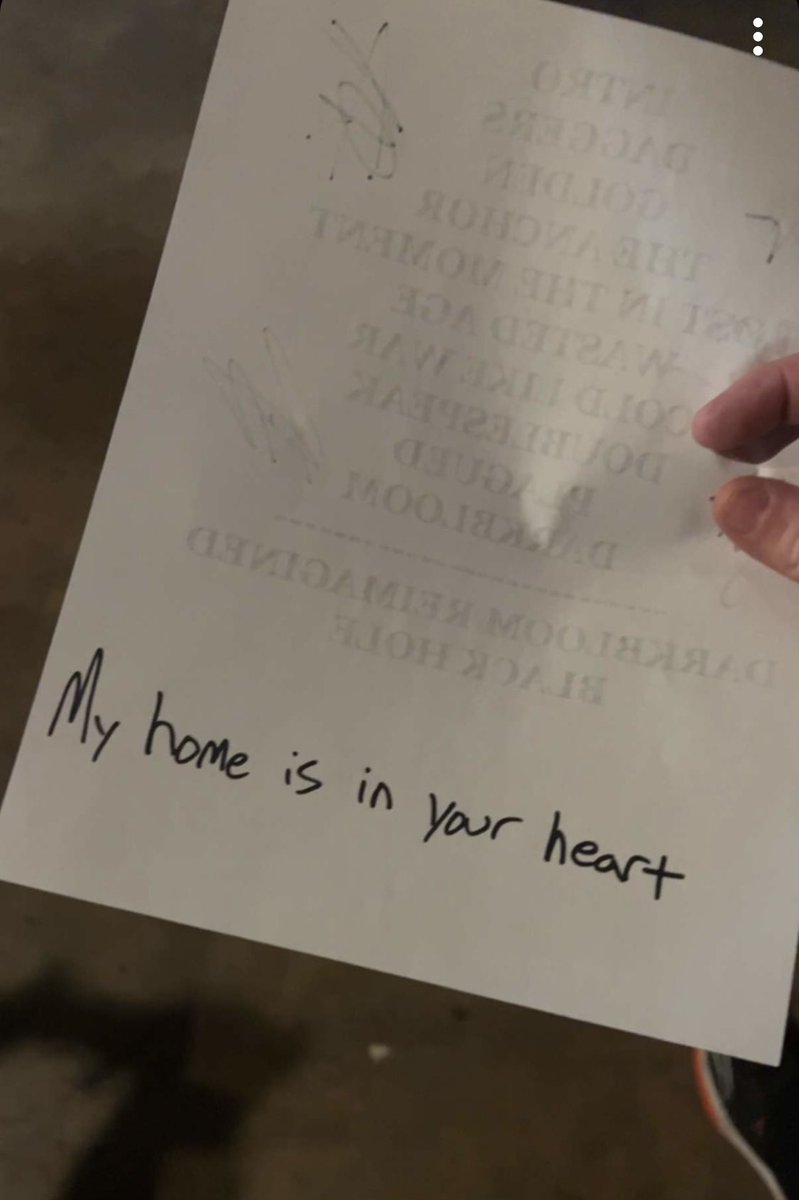 INTRO
DAGGERS
GOLDEN
THE ANCHOR
LOST IN THE MOMENT
WASTED AGE
COLD LIKE WAR
DOUBLESPEAK
PLAGUED
DARKBLOOM
DARKBLOOM REIMAGINED
BLACK HOLE
My home is in your heart